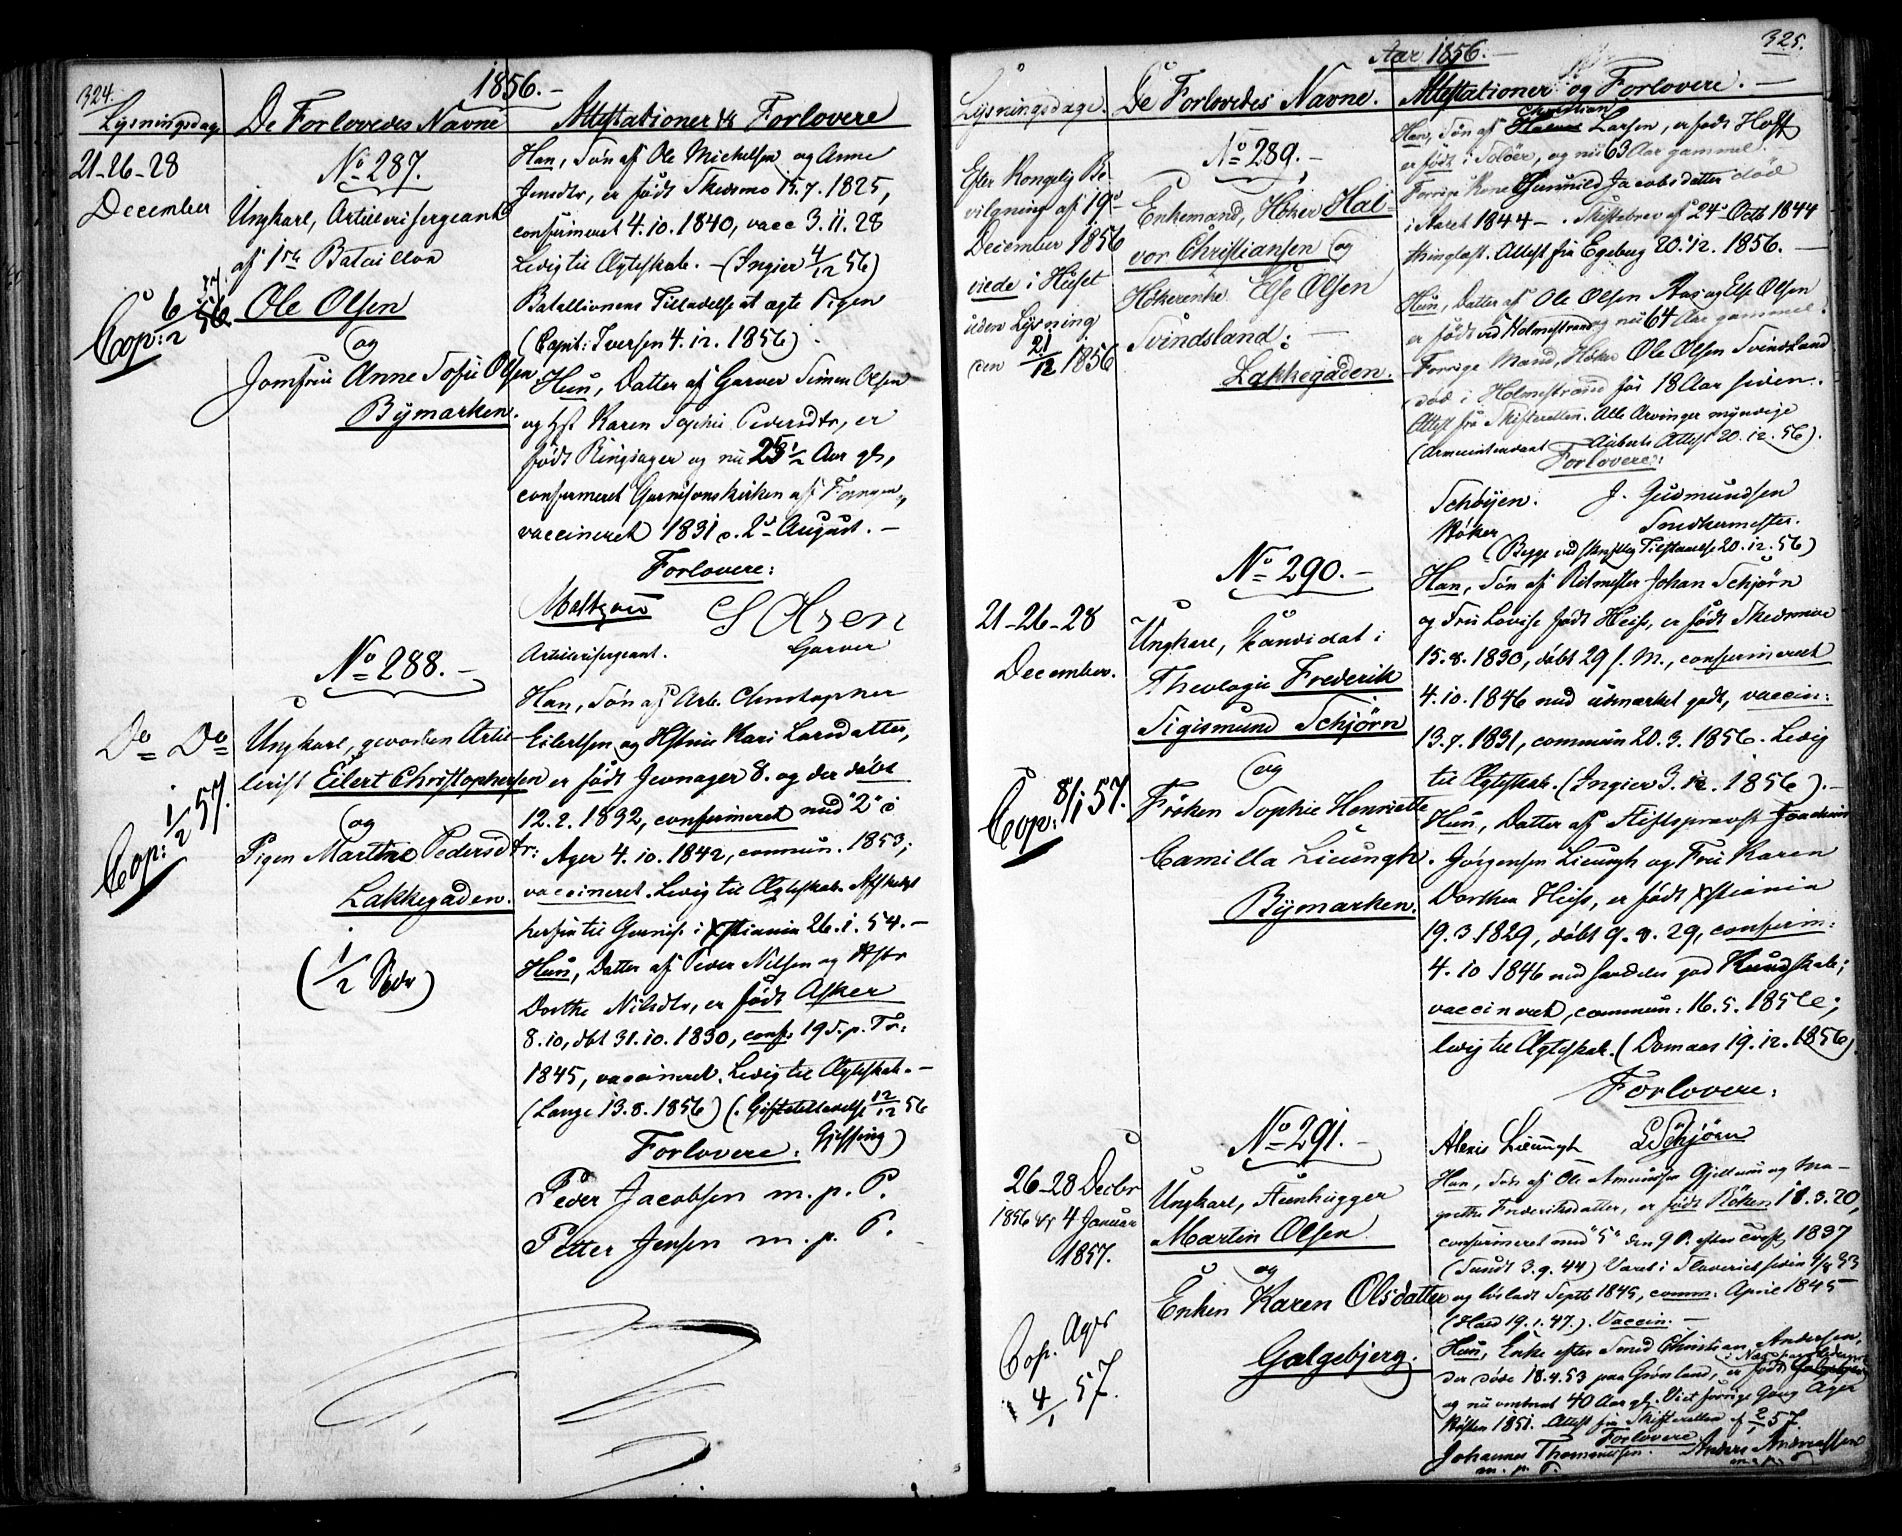 324.
1856.
Lysningsdag. De Forlovedes Navne Attestationer & Forlovere
21-26-28
December
No 287.
Ungkarl, Artillerisergeant
af 1ste Batallion
Ole Olsen
og
Jomfru Anne Sofie Olsen
Bymarken.
Cop: 6/2 56.
Han, Søn af Ole Mickelsen og Anne
Jensdtr, er født Skedsmo 15.7.1825,
confirmeret 4.10.1840, vacc 3.11.28
Ledig til Ægteskab. - (Ingier 4/12 56)
Batallionens Tilladelse at ægte Pigen
(Capit: Iversen 4.12.1856).
Hun, Datter af Garver Simen Olsen
og Hst Karen Sophie Pedersdtr, er
født Ringsager og nu 25 1/2 Aar gl,
confirmeret Garnisonskirken af
vaccineret 1831 d. 2den August. -
Forlovere:
S Olsen
Artillerisergeant. Garver
No 288.-
Do Do
Ungkarl, gevorben Artil-
lerist Eilert Christophersen
og
Pigen Marthe Pedersdtr:
Lakkegaden.
(1/2 Spdr)
Cop: 1/2 57.
Han, Søn af Arb. Christopher
Eilertsen og Hstru Kari Larsdatter,
er født Jevnager 8. og der døbt
12.2.1892, confirmeret med "2" i
Ager 4.10.1842, commun. 1853;
vaccineret. Ledig til Ægteskab. Afskediget
herfra til Garnis: i Xstiania 26.1.54.-
Hun, Datter af Peder Nilsen og Hstr
Dorthe Nilsdtr, er født Asker
8.10, dbt 31.10.1830, conf: 19 S. p. Tr:
1845, vaccineret. Ledig til Ægteskab.-
(Lange 13.8.1856) (Giftetilladelse 12/12 56
Gjessing)
Forlovere.
Peder Jacobsen m. p. P.
Petter Jensen m. p. P.
325.
Aar 1856.-
Lysningsdage. De Forlovedes Navne. Attestationer og Forlovere.-
Efter Kongelig Be-
vilgning af 19de
December 1856
viede i Huset
uden Lysning
den 21/12 1856
No 289.-
Enkemand, Høker Hal-
vor Christiansen og
Høkerenke Else Olsen
Svindsland:-
Lakkegaden.
Christian
Han, Søn af Larsen, er født Hoff
er født i Soløer, og nu 63 Aar gammel.
Forrige Kone Gunnild Jacobsdatter død
i Aaret 1844 - Skiftebrev af 24de Octb 1844
thinglæst. Attest fra Egeberg 20.12.1856.-
Hun, Datter af Ole Olsen Aas og Else Olsen
er født ved Holmestrand og nu 64 Aar gammel.
Forrige Mand, Høker Ole Olsen Svindsland
død i Holmestrand for 18 Aar siden.
Attest fra Skifteretten. Alle Arvinger myndige
(Armeintendant Auberts Attest 20.12.56).
Forlovere:
Schøyen. J. Gudmundsen
Høker Snedkermester.
(Begge ved skriftlig Tilstaaelse 20.12.56)
No 290.-
21-26-28
December.
Ungkarl, Kandidat i
Theologie Frederik
Sigismund Schjørn
og
Frøken Sophie Henriette
Camilla Lieungh.
Bymarken.
Cop: 8/1 57.
Han, Søn af Ritmester Johan Schjørn
og Fru Lovise født Heiss, er født Skedsmoe
15.8.1830, døbt 29 s. M., confirmeret
4.10.1846 med udmærket godt, vaccin:
13.7.1831, commun 20.3.1856. Ledig
til Ægteskab. (Ingier 3.12.1856).-
Hun, Datter af Stiftsprovst Joachim
Jørgensen Lieungh og Fru Karen
Dorthea Heiss, er født Xstiania
19.3.1829, døbt 9.8.29, confirm:
4.10 1846 med særdeles god Kundskab;
vaccineret, commun: 16.5.1856;
ledig til Ægteskab. (Domaas 19.12.1856).
Forlovere:
Alexis Lieungh L Schjørn
No 291.-
26-28 Decbr
1856 & 4 Januar
1857.
Ungkarl, Steenhugger
Martin Olsen
og
Enken Karen Olsdatter
Galgebjerg.
Cop. Ager
4/1 57.
Han, Søn af Ole Amundsen Gjellum og Ma-
grethe Frederiksdatter, er født Røken 18.3.20,
confirmeret med "5" den 9 P. efter 1837
(Sundt 3.9.44) Været i Slaveriet siden 9/8 33
og løsladt Septb 1845, comm: April 1845
(Hald 19.1.47). Vaccin:-
Hun, Enke efter Smed Christian Andersen,
der døde 18.4.53 paa Grønland, er født
og nu omtrent 40 Aar gl. Viet forrige Gang Ager
Høsten 1851. Attest fra Skifteretten af 2/1 57
Forlovere
Johannes Thommesen. Anders Andreassen
m. p. P. m. p. P.